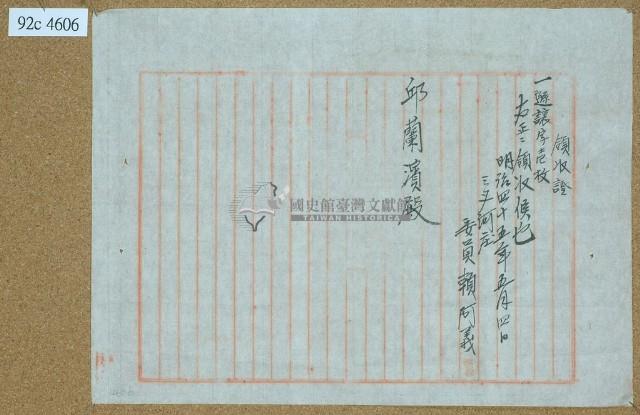 92c 4606
領收證
一遜讓字壱枚
右正ニ領收候也
明治四十五年五月四日
三叉河庄
委員賴阿義
邱蘭濱殿
國史館臺灣文獻館
TAIWAN HISTORICA